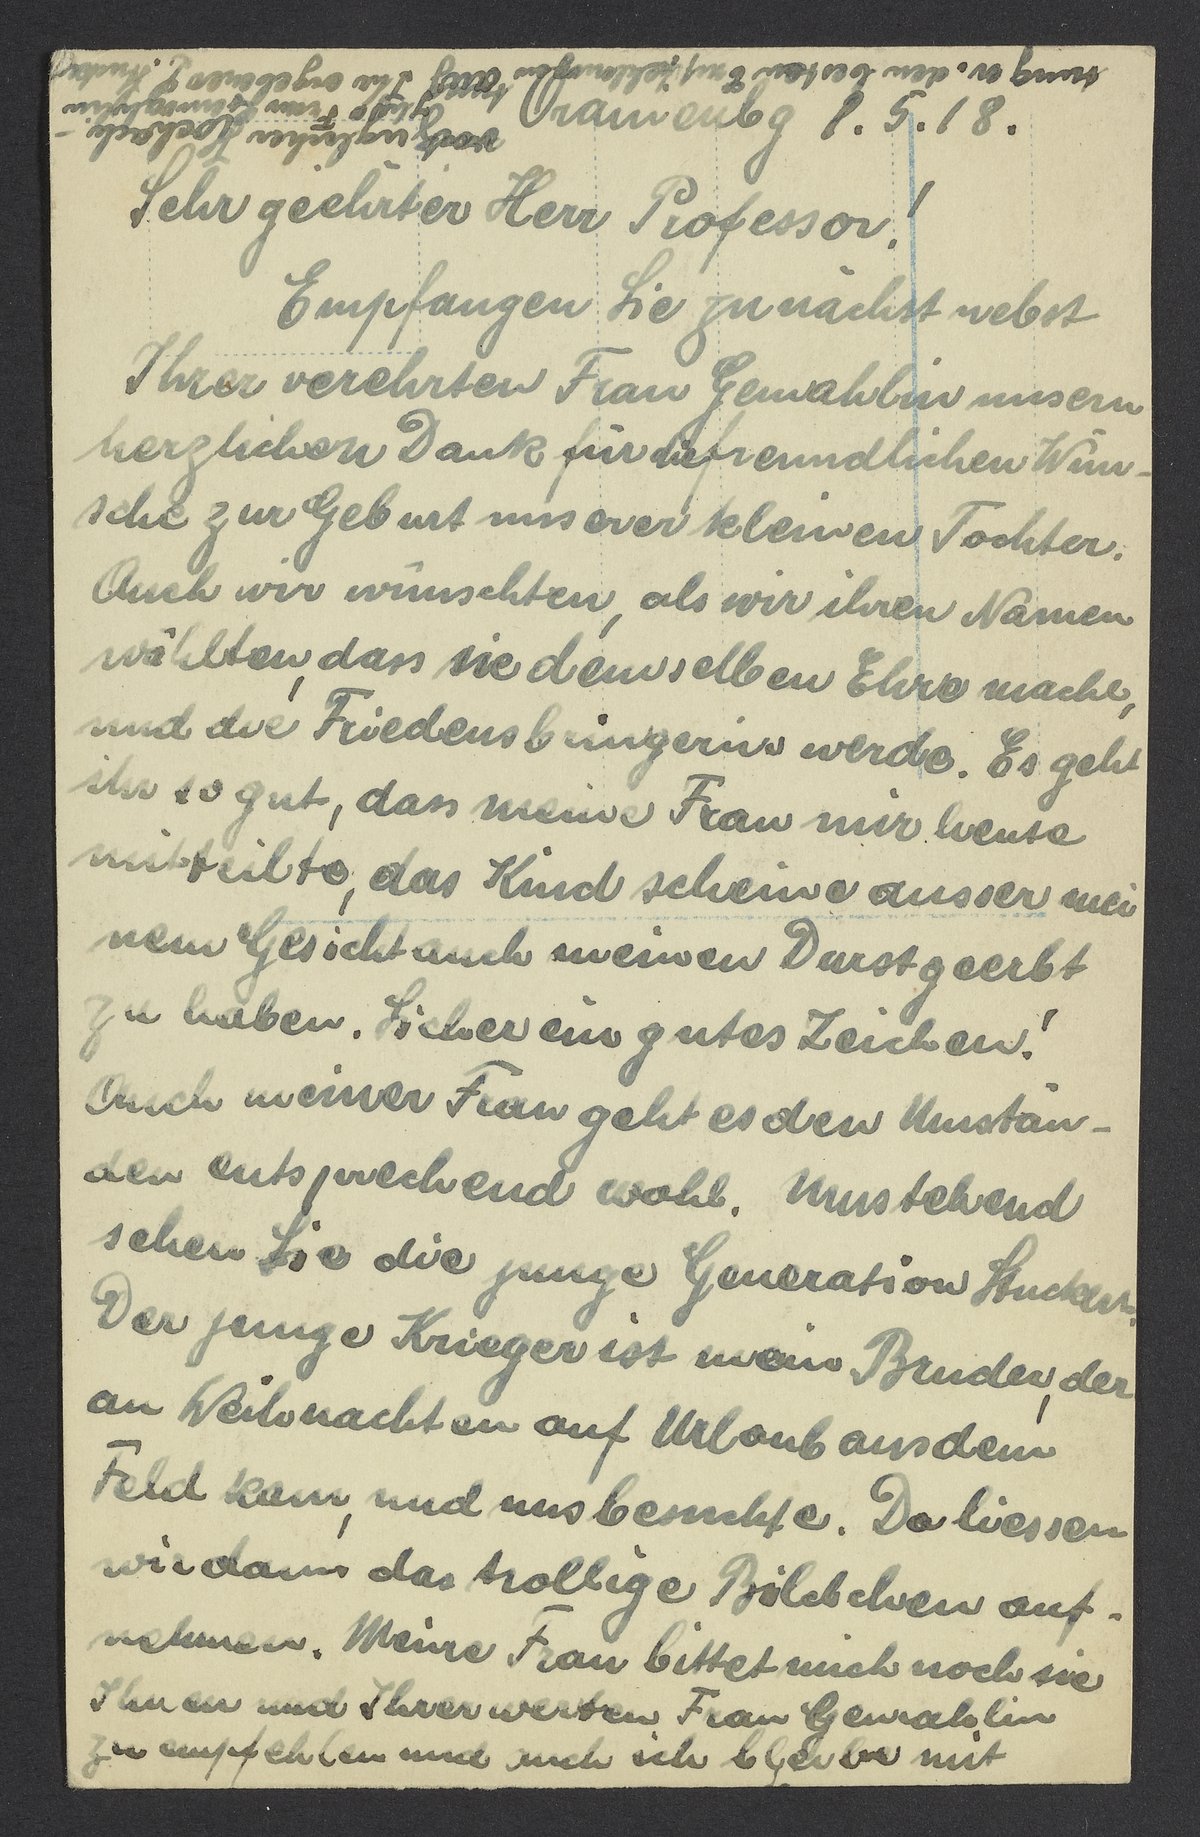 Oranienbg 1. 5. 18.
Sehr geehrter Herr Professor!
Empfangen Sie zunächst nebst
Ihrer verehrten Frau Gemahlin unsern
herzlichen Dank für die freundlichen Wün-
sche zur Geburt unserer kleinen Tochter.
Auch wir wünschten, als wir ihren Namen
wählten, dass sie demselben Ehre mache,
und die Friedensbringerin werde. Es geht
ihr so gut, dass meine Frau mir heute
mitteilte, das Kind scheine ausser mei
nem Gesicht auch meinen Durst geerbt
zu haben. Sicher ein gutes Zeichen!
Auch meiner Frau geht es den Umstän-
den entsprechend wohl. Umstehend
sehen Sie die junge Generation
Der junge Krieger ist mein Bruder, der
an Weihnachten auf Urlaub aus dem
Feld kam, und uns besuchte. Da liessen
wir dann das trollige Bildchen auf-
nehmen. Meine Frau bittet mich noch sie
Ihnen und Ihrer werten Frau Gemahlin
zu empfehlen und auch ich bleibe mit
vorzüglicher Hochach-
tung u. den besten Empfehlungen auch
Frau Gemahlin
Ihr ergebener